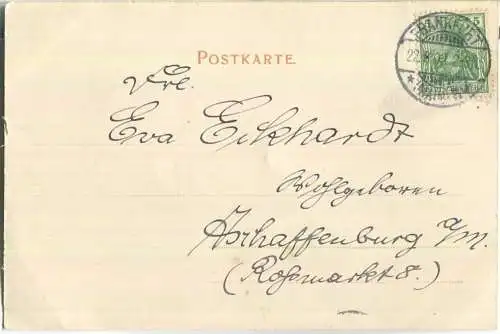 POSTKARTE
Frl.
Eva Eckhardt
Wohlgeboren
Aschaffenburg a/M.
(Rossmarkt 8.)
FRANKFURT
5